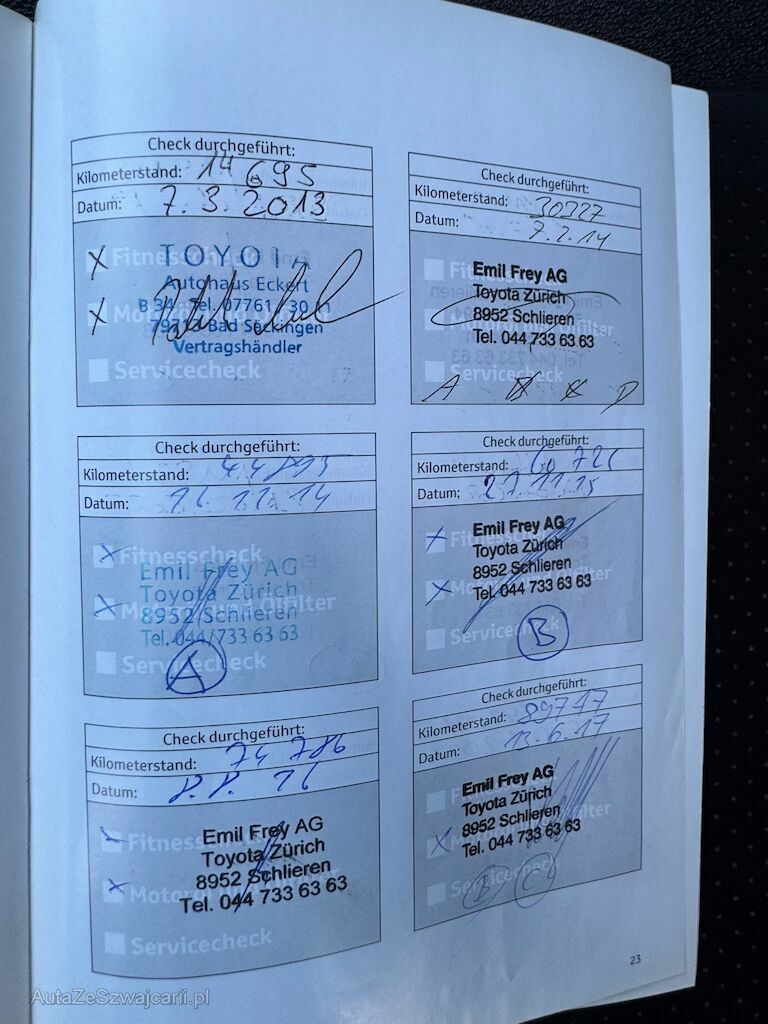 Check durchgeführt:
Kilometerstand: 14 695
Datum: 7.3.2013
X Fitnesscheck
TOYOTA
Autohaus Eckert
X Motoröl Ölfilter
79713 Bad Säckingen
Vertragshändler
Servicecheck
Check durchgeführt:
Kilometerstand: 30327
Datum: 7.2.14
Emil Frey AG
Toyota Zürich
8952 Schlieren
Tel. 044 733 63 63
Servicecheck
A B C D
Check durchgeführt:
Kilometerstand: 44895
Datum: 12.14
X Fitnesscheck
Emil Frey AG
Toyota Zürich
X Motoröl und Ölfilter
8952 Schlieren
Tel. 044/733 63 63
Servicecheck
A
Check durchgeführt:
Kilometerstand:
Datum: 27.11.15
X
Emil Frey AG
Toyota Zürich
8952 Schlieren
X
Tel. 044 733 63 63
Servicecheck
B
Check durchgeführt:
Kilometerstand: 74 786
Datum: 8.8.16
Fitnesscheck
Emil Frey AG
Toyota Zürich
8952 Schlieren
X Motoröl
Tel. 044 733 63 63
Servicecheck
Check durchgeführt:
Kilometerstand: 89747
Datum: 13.6.17
Emil Frey AG
Toyota Zürich
8952 Schlieren
X
Tel. 044 733 63 63
Servicecheck
B C
23
AutaZeSzwajcarii.pl